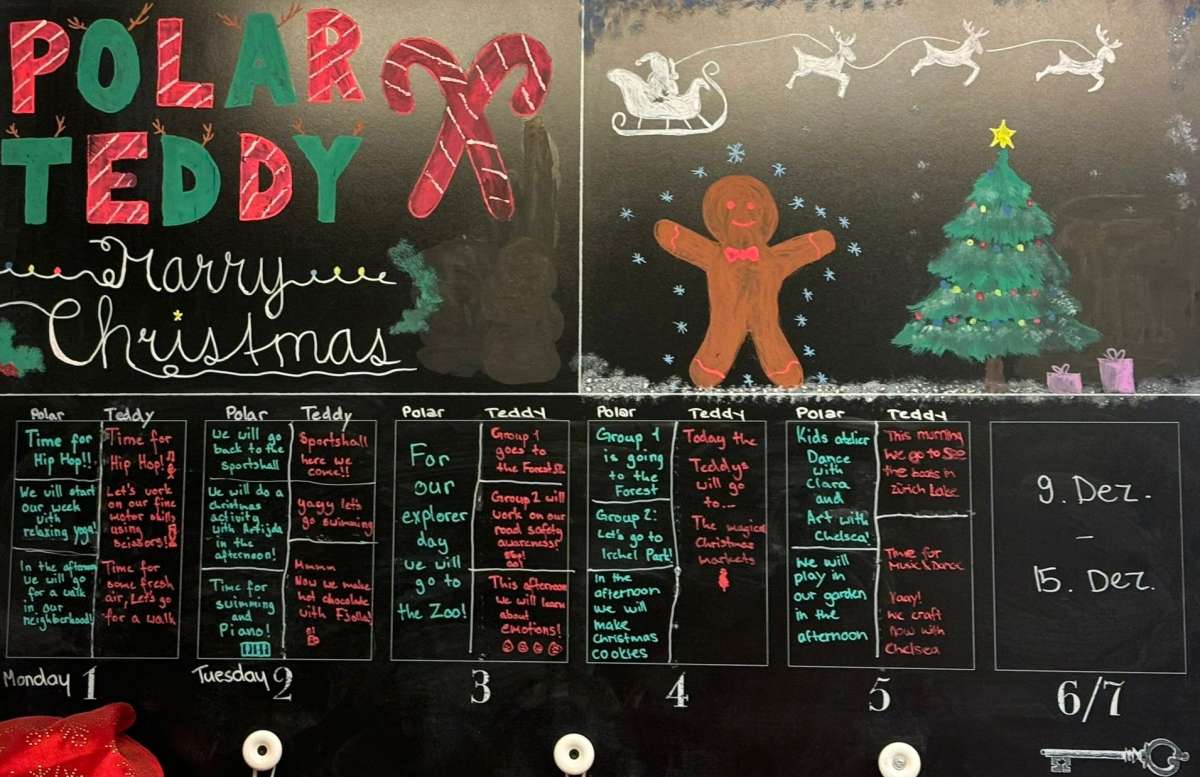 POLAR
TEDDY
Marry
Christmas
Polar
Time for
Hip Hop!!
We will start
our week
with
relaxing yoga!
In the afternoon
we will go
for a walk
in our
neighborhood!
Teddy
Time for
Hip Hop!
Let's work
on our fine
motor skills
using
scissors!
Time for
some fresh
air, Let's go
for a walk
Monday 1
Polar
We will go
back to the
sportshall
We will do a
christmas
activity
with Artijda
in the
afternoon!
Time for
swimming
and
Piano!
Teddy
Sportshall
here we
come!!
yaay let's
go swimming
Mmmm
Now we make
hot chocolate
with Fjolla!
Tuesday 2
Polar
For
our
explorer
day
we will
go to
the Zoo!
Teddy
Group 1
goes to
the Forest
Group 2 will
work on our
road safety
awareness!
This afternoon
we will learn
about
emotions!
3
Polar
Group 1
is going
to the
Forest
Group 2:
Let's go to
Irchel Park!
In the
afternoon
we will
make
christmas
cookies
Teddy
Today the
Teddys
will go
to...
The magical
Christmas
markets
4
Polar
Kids atelier
Dance
with
Clara
and
Art with
Chelsea!
We will
play in
our garden
in the
afternoon
Teddy
This morning
we go to see
the boats in
zürich Lake
Time for
Music & Dance
Yaay!
we craft
now with
Chelsea
5
9. Dez.
-
15. Dez.
6/7